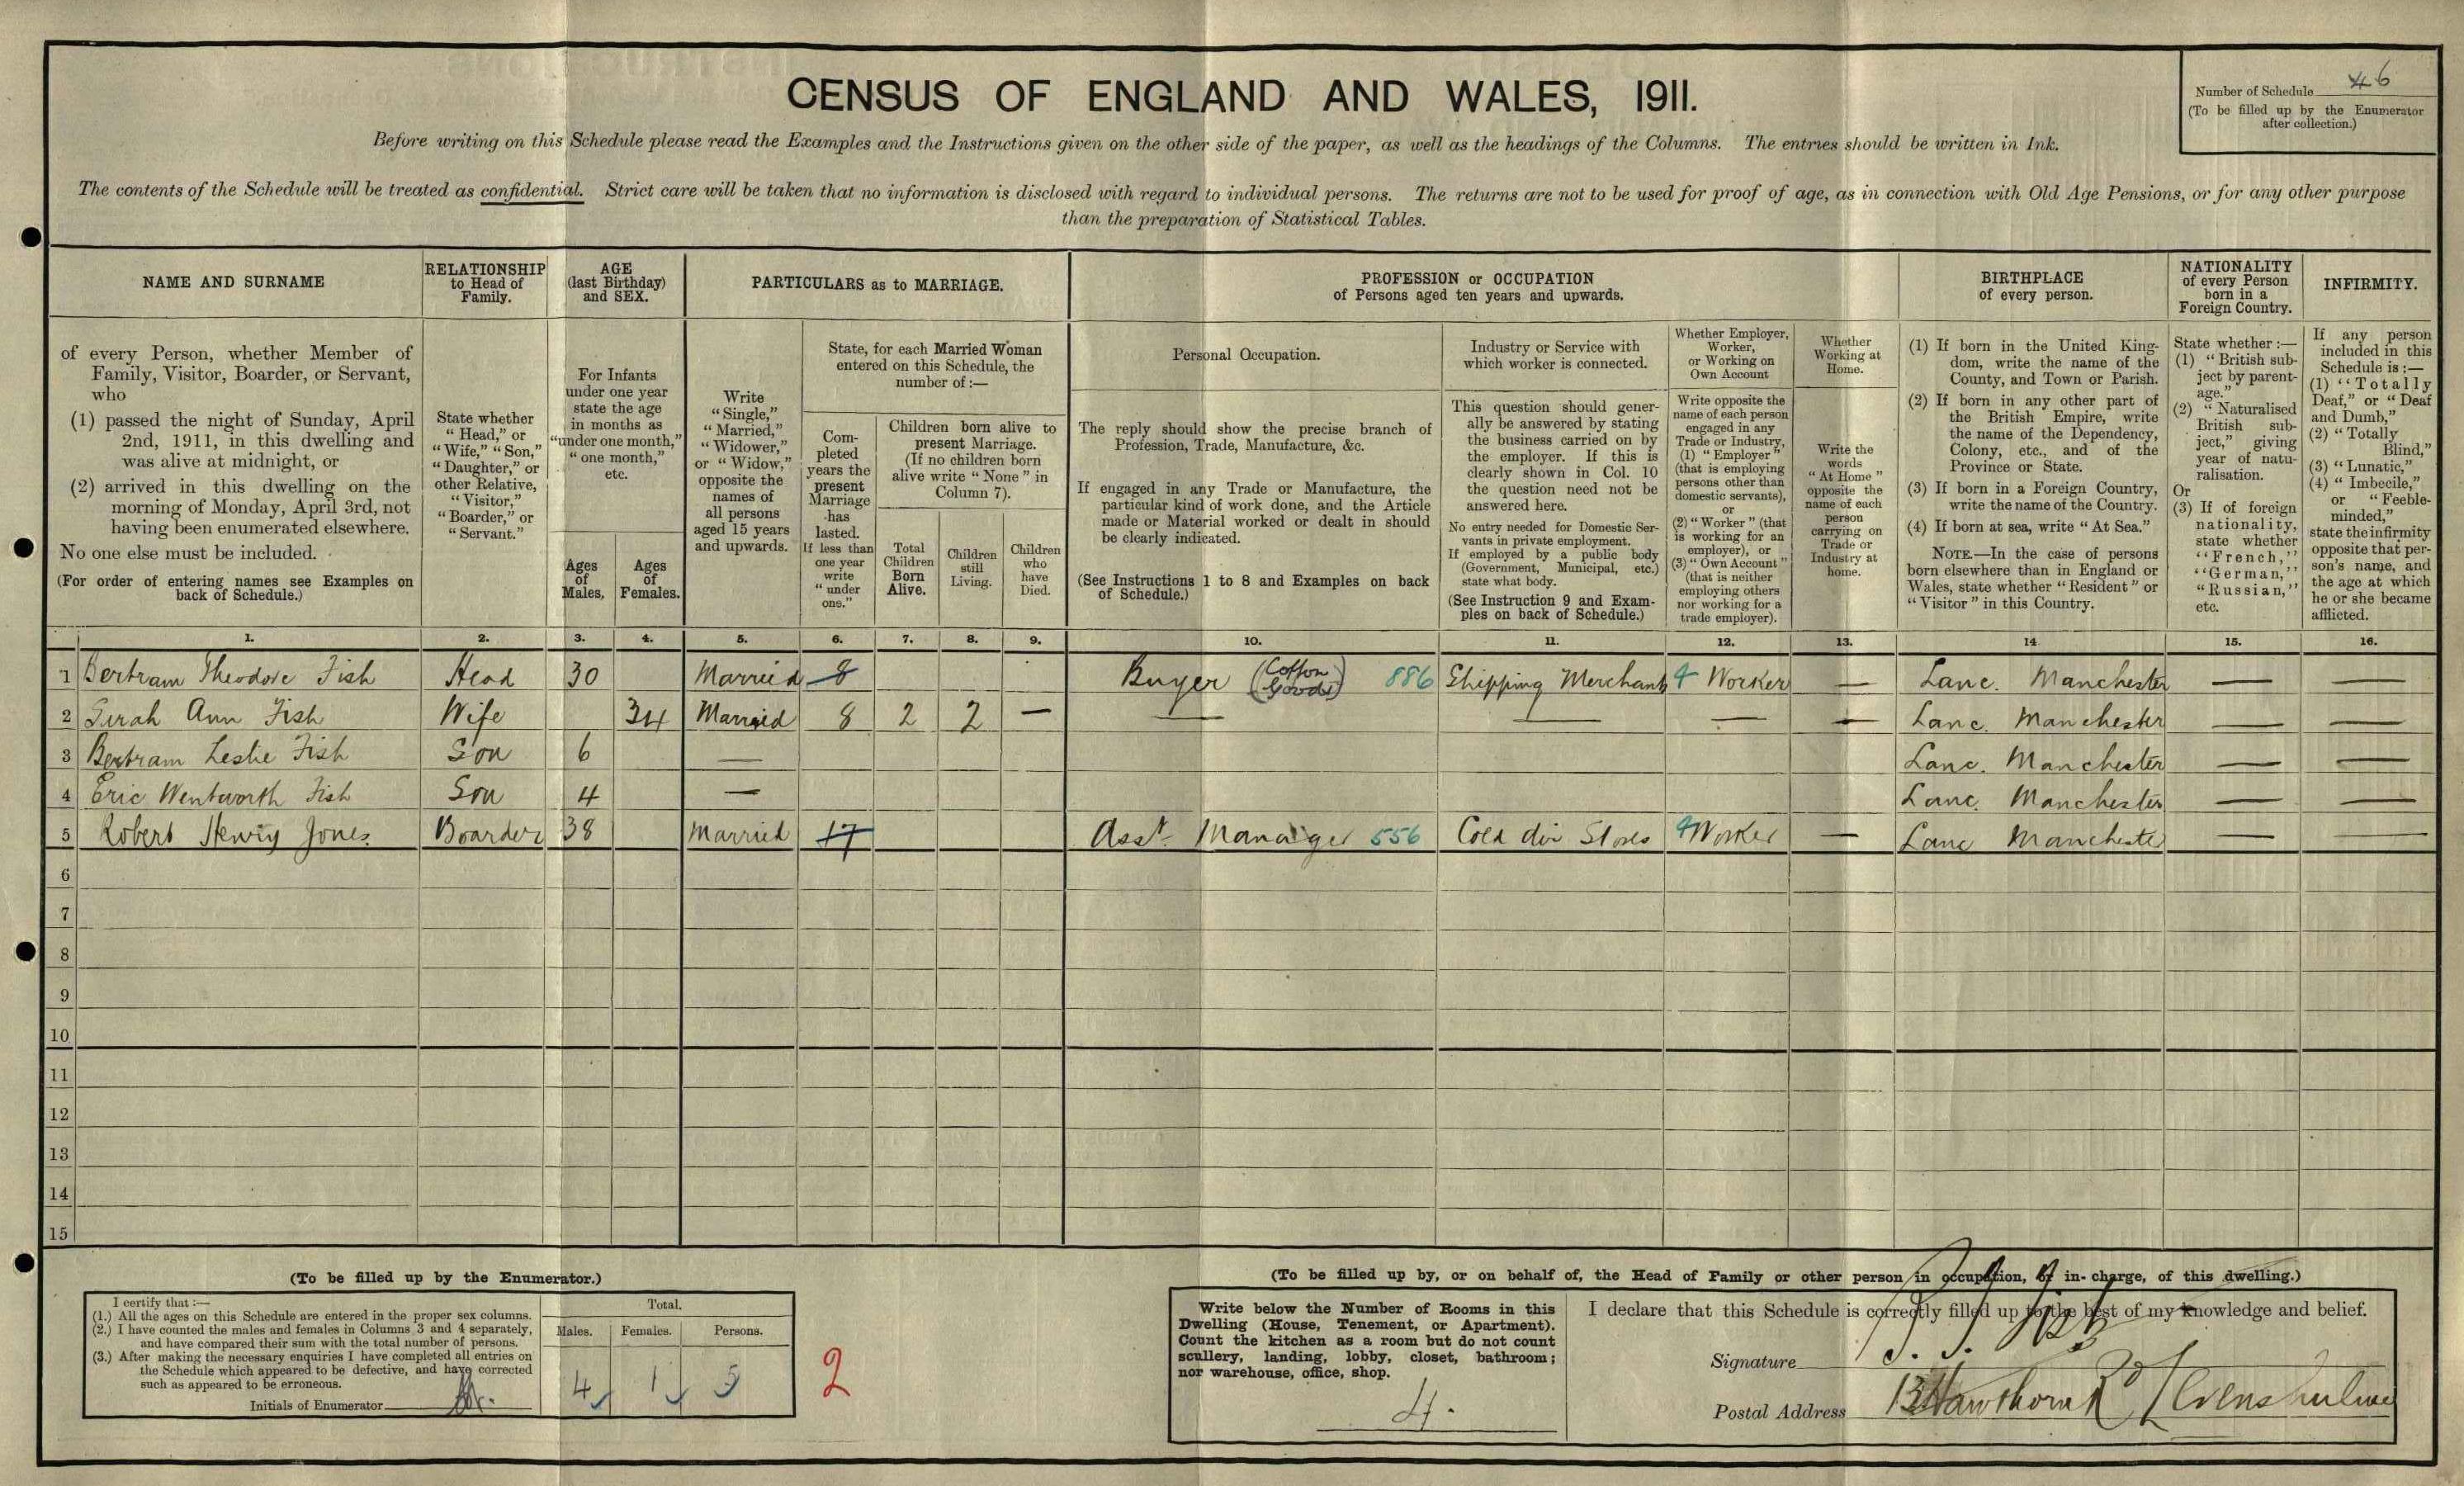 CENSUS OF ENGLAND AND WALES, 1911.
Number of Schedule 46
(To be filled up by the Enumerator
after collection.)
Before writing on this Schedule please read the Examples and the Instructions given on the other side of the paper, as well as the headings of the Columns. The entries should be written in Ink.
The contents of the Schedule will be treated as confidential. Strict care will be taken that no information is disclosed with regard to individual persons. The returns are not to be used for proof of age, as in connection with Old Age Pensions, or for any other purpose
than the preparation of Statistical Tables.
NAME AND SURNAME
of every Person, whether Member of
Family, Visitor, Boarder, or Servant,
who
(1) passed the night of Sunday, April
2nd, 1911, in this dwelling and
was alive at midnight, or
(2) arrived in this dwelling on the
morning of Monday, April 3rd, not
having been enumerated elsewhere.
No one else must be included.
(For order of entering names see Examples on
back of Schedule.)
RELATIONSHIP
to Head of
Family.
State whether
"Head," or
"Wife," "Son,"
"Daughter," or
other Relative,
"Visitor,"
"Boarder," or
"Servant."
AGE
(last Birthday)
and SEX.
For Infants
under one year
state the age
in months as
"under one month,"
"one month,"
etc.
Ages
of
Males.
Ages
of
Females.
PARTICULARS as to MARRIAGE.
Write
"Single,"
"Married,"
"Widower,"
or "Widow,"
opposite the
names of
all persons
aged 15 years
and upwards.
State, for each Married Woman
entered on this Schedule, the
number of :—
Com-
pleted
years the
present
Marriage
has
lasted.
If less than
one year
write
"under
one."
Children born alive to
present Marriage.
(If no children born
alive write "None" in
Column 7).
Total
Children
Born
Alive.
Children
still
Living.
Children
who
have
Died.
PROFESSION or OCCUPATION
of Persons aged ten years and upwards.
Personal Occupation.
The reply should show the precise branch of
Profession, Trade, Manufacture, &c.
If engaged in any Trade or Manufacture, the
particular kind of work done, and the Article
made or Material worked or dealt in should
be clearly indicated.
(See Instructions 1 to 8 and Examples on back
of Schedule.)
Industry or Service with
which worker is connected.
This question should gener-
ally be answered by stating
the business carried on by
the employer. If this is
clearly shown in Col. 10
the question need not be
answered here.
No entry needed for Domestic Ser-
vants in private employment.
If employed by a public body
(Government, Municipal, etc.)
state what body.
(See Instruction 9 and Exam-
ples on back of Schedule.)
Whether Employer,
Worker,
or Working on
Own Account
Write opposite the
name of each person
engaged in any
Trade or Industry,
(1) "Employer"
(that is employing
persons other than
domestic servants),
or
(2) "Worker" (that
is working for an
employer), or
(3) "Own Account"
(that is neither
employing others
nor working for a
trade employer).
Whether
Working at
Home.
Write the
words
"At Home"
opposite the
name of each
person
carrying on
Trade or
Industry at
home.
BIRTHPLACE
of every person.
(1) If born in the United King-
dom, write the name of the
County, and Town or Parish.
(2) If born in any other part of
the British Empire, write
the name of the Dependency,
Colony, etc., and of the
Province or State.
(3) If born in a Foreign Country,
write the name of the Country.
(4) If born at sea, write "At Sea."
NOTE.—In the case of persons
born elsewhere than in England or
Wales, state whether "Resident" or
"Visitor" in this Country.
NATIONALITY
of every Person
born in a
Foreign Country.
State whether :—
(1) "British sub-
ject by parent-
age."
(2) "Naturalised
British sub-
ject," giving
year of natu-
ralisation.
Or
(3) If of foreign
nationality,
state whether
"French,"
"German,"
"Russian,"
etc.
INFIRMITY.
If any person
included in this
Schedule is :—
(1) "Totally
Deaf," or "Deaf
and Dumb,"
(2) "Totally
Blind,"
(3) "Lunatic,"
(4) "Imbecile,"
or "Feeble-
minded,"
state the infirmity
opposite that per-
son's name, and
the age at which
he or she became
afflicted.
1. 2. 3. 4. 5. 6. 7. 8. 9. 10. 11. 12. 13. 14 15. 16.
1 Bertram Theodore Fish Head 30 Married 8 Buyer (Cotton Goods) 886 Shipping Merchants 4 Worker — Lanc. Manchester — —
2 Sarah Ann Fish Wife 34 Married 8 2 2 — — — — — Lanc. Manchester — —
3 Bertram Leslie Fish Son 6 — Lanc. Manchester — —
4 Eric Wentworth Fish Son 4 — Lanc. Manchester — —
5 Robert Henry Jones Boarder 38 Married 17 Asst. Manager 556 Cold Air Stores 4 Worker — Lanc Manchester — —
6
7
8
9
10
11
12
13
14
15
(To be filled up by the Enumerator.)
I certify that :—
(1.) All the ages on this Schedule are entered in the proper sex columns.
(2.) I have counted the males and females in Columns 3 and 4 separately,
and have compared their sum with the total number of persons.
(3.) After making the necessary enquiries I have completed all entries on
the Schedule which appeared to be defective, and have corrected
such as appeared to be erroneous.
Initials of Enumerator
Total.
Males. Females. Persons.
4 1 5
2
(To be filled up by, or on behalf of, the Head of Family or other person in occupation, or in charge, of this dwelling.)
Write below the Number of Rooms in this
Dwelling (House, Tenement, or Apartment).
Count the kitchen as a room but do not count
scullery, landing, lobby, closet, bathroom;
nor warehouse, office, shop.
4.
I declare that this Schedule is correctly filled up to the best of my knowledge and belief.
Signature B. T. Fish
Postal Address 13 Hawthorn Rd Levenshulme